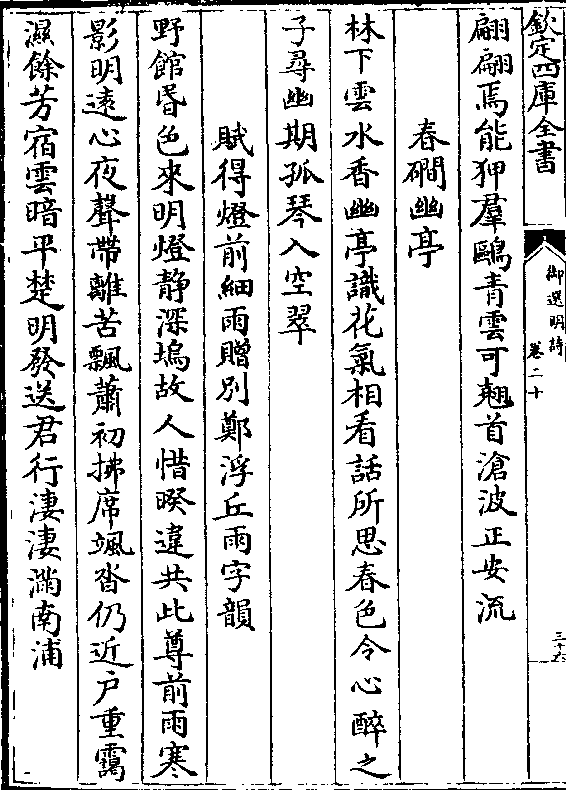 欽定四庫全書
御選明詩
卷二十
三十六
翩翩焉能狎羣鷗青雲可翹首滄波正安流
春磵幽亭
林下雲水香幽亭識花氣相看話所思春色令心醉之
子尋幽期孤琴入空翠
賦得燈前細雨贈別鄭浮丘雨字韻
野館昏色來明燈静深塢故人惜暌違共此尊前雨寒
影明遠心夜聲帶離苦飄蕭初拂席颯沓仍近户重靄
濕餘芳宿雲暗平楚明發送君行淒淒滿南浦